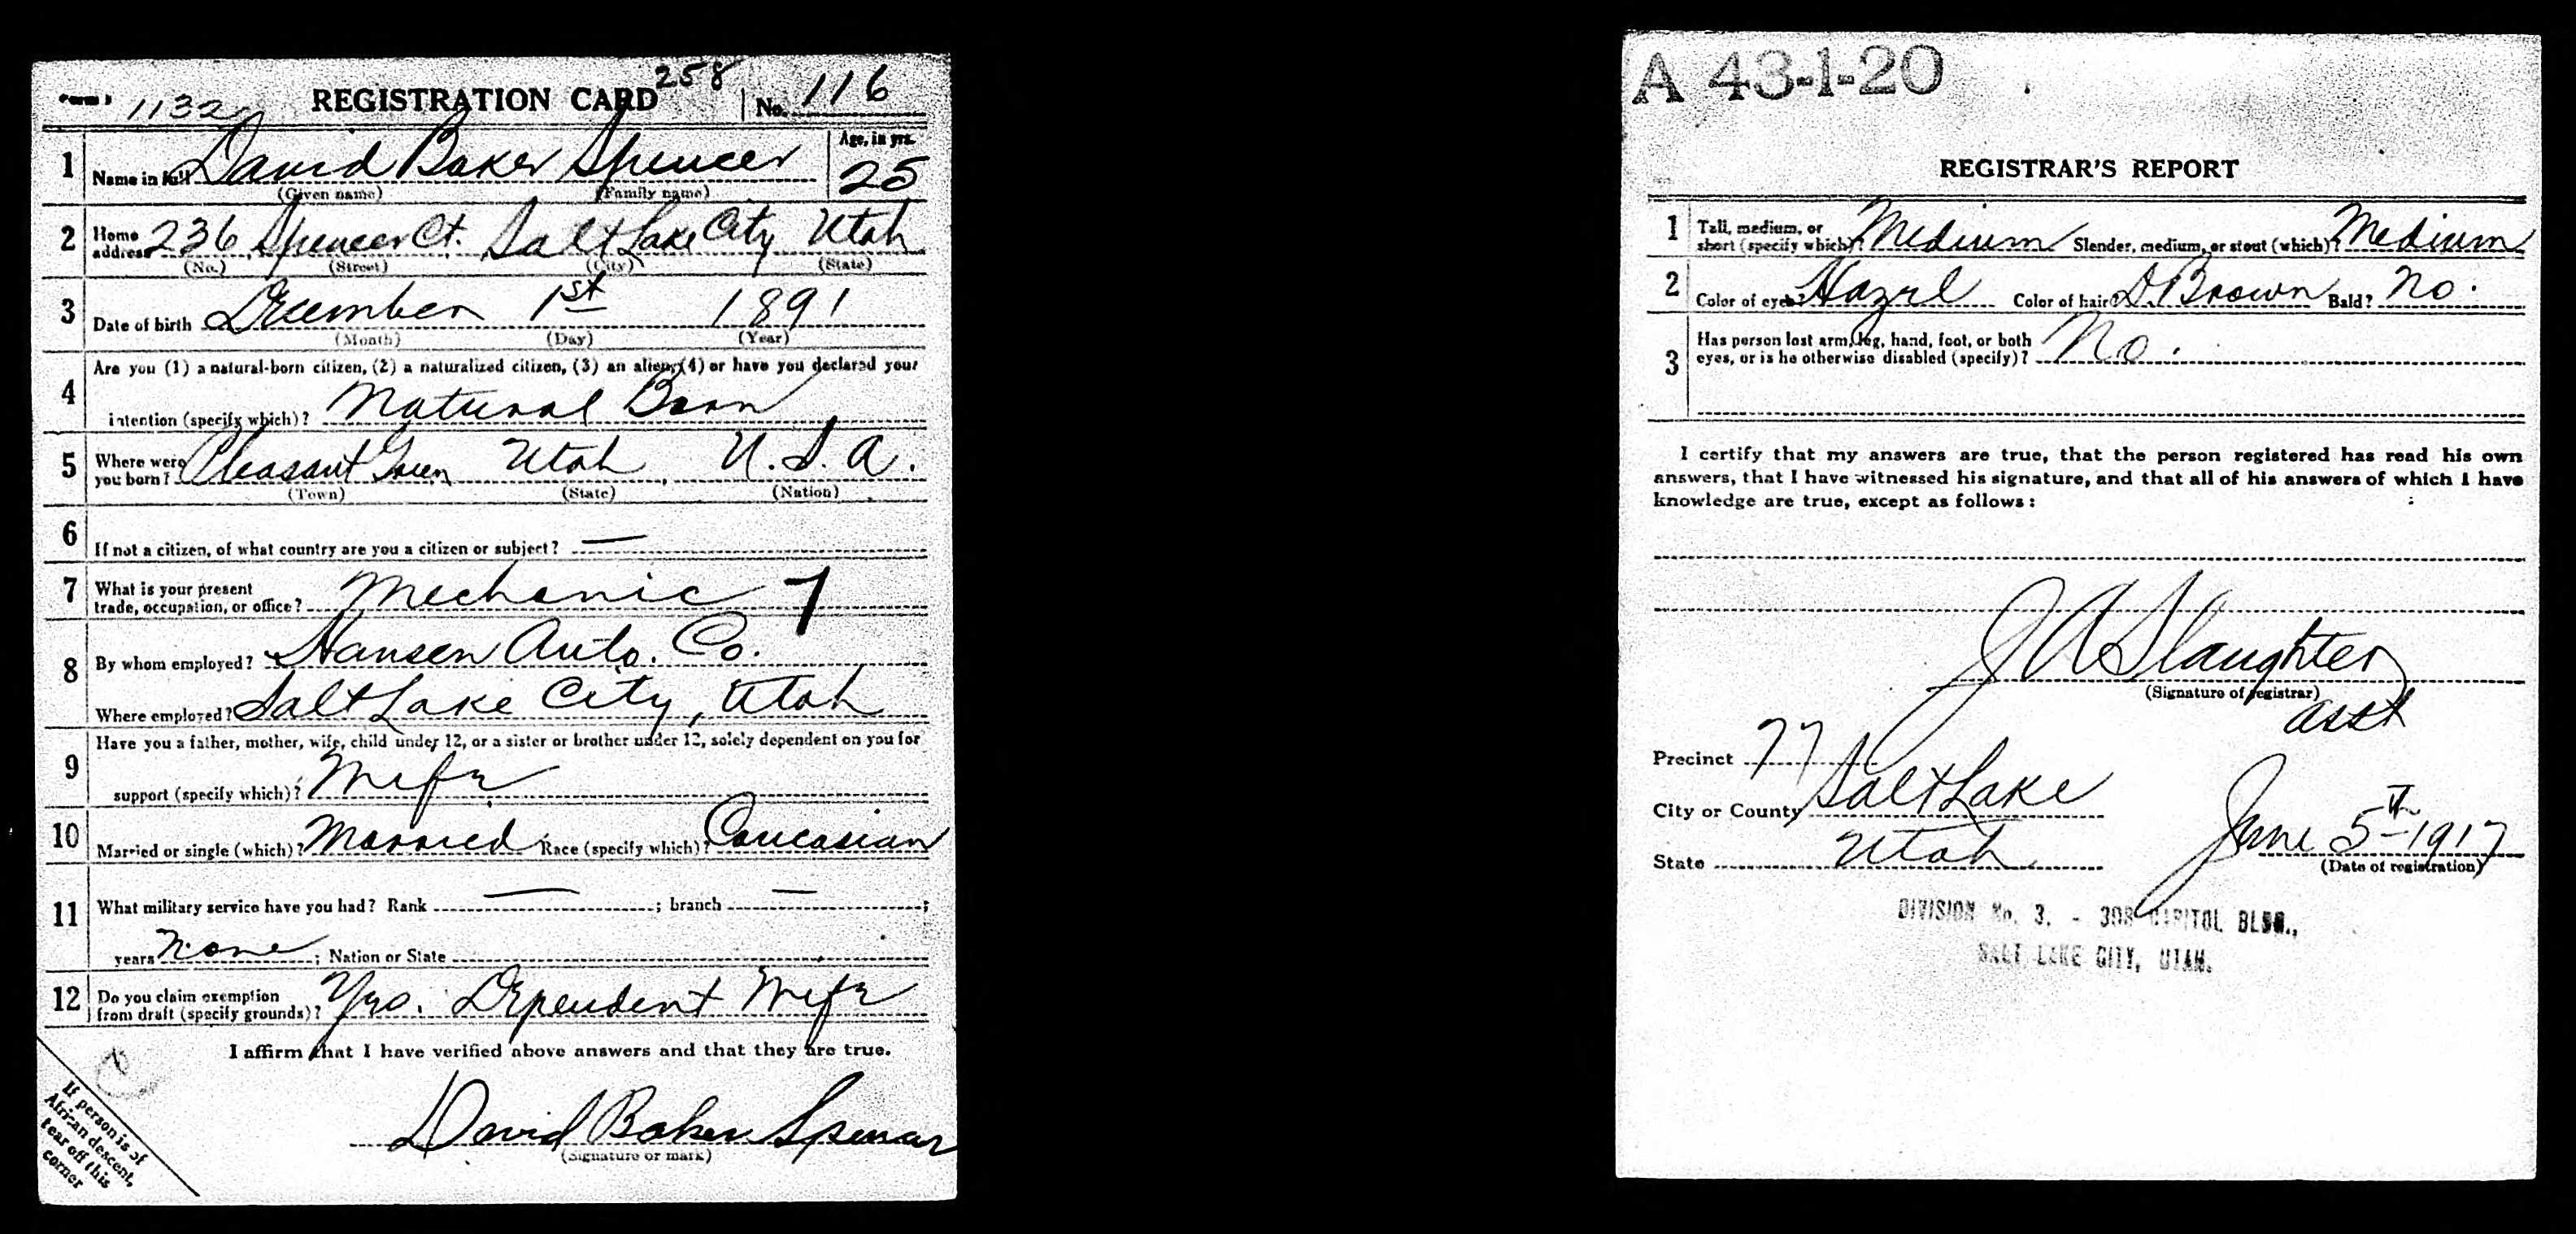 Form 1 1132 REGISTRATION CARD 258 No. 116
1 Name in full David Baker Spencer Age, in yrs. 25
(Given name) (Family name)
2 Home address 236 Spencer Ct. Salt Lake City Utah
(No.) (Street) (City) (State)
3 Date of birth December 1st 1891
(Month) (Day) (Year)
4 Are you (1) a natural-born citizen, (2) a naturalized citizen, (3) an alien, (4) or have you declared your
intention (specify which)? Natural Born
5 Where were you born? Pleasant Green Utah U.S.A.
(Town) (State) (Nation)
6 If not a citizen, of what country are you a citizen or subject? —
7 What is your present trade, occupation, or office? Mechanic 7
8 By whom employed? Hansen Auto. Co.
Where employed? Salt Lake City, Utah
9 Have you a father, mother, wife, child under 12, or a sister or brother under 12, solely dependent on you for
support (specify which)? Wife
10 Married or single (which)? Married Race (specify which)? Caucasian
11 What military service have you had? Rank — ; branch — ;
years None ; Nation or State
12 Do you claim exemption from draft (specify grounds)? Yes. Dependent Wife
I affirm that I have verified above answers and that they are true.
David Baker Spencer
(Signature or mark)
If person is of
African descent,
tear off this
corner
A 43-1-20
REGISTRAR'S REPORT
1 Tall, medium, or short (specify which)? Medium Slender, medium, or stout (which)? Medium
2 Color of eyes? Hazel Color of hair? D. Brown Bald? No.
3 Has person lost arm, leg, hand, foot, or both
eyes, or is he otherwise disabled (specify)? No.
I certify that my answers are true, that the person registered has read his own
answers, that I have witnessed his signature, and that all of his answers of which I have
knowledge are true, except as follows:
J A Slaughter
(Signature of registrar)
asst
Precinct 77
City or County Salt Lake
State Utah June 5th 1917
(Date of registration)
DIVISION No. 3. - 308 CAPITOL BLDG.,
SALT LAKE CITY, UTAH.